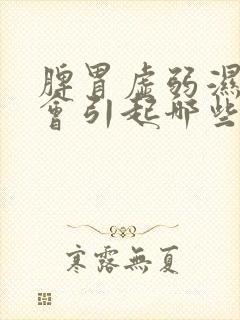 脾胃虛弱濕
會引起哪些
寒露無夏